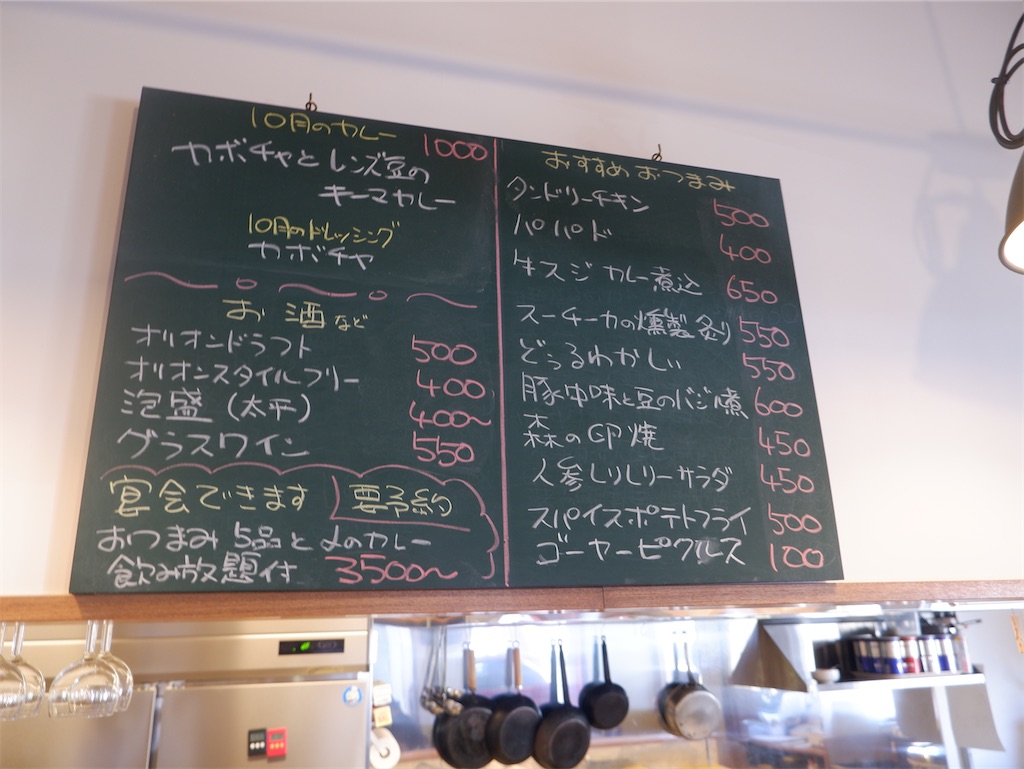 10月のカレー
カボチャとレンズ豆の 1000
キーマカレー
10月のドレッシング
カボチャ
お酒など
オリオンドラフト 500
オリオンスタイルフリー 400
泡盛(太平) 400~
グラスワイン 550
宴会できます 要予約
おつまみ5品と〆のカレー
飲み放題付 3500~
おすすめおつまみ
タンドリーチキン 500
パパド 400
牛スジカレー煮込 650
スーチーカの燻製炙り 550
どぅるわかしい 550
豚中味と豆のバジル煮 600
森の卵焼 450
人参しりしりーサラダ 450
スパイスポテトフライ 500
ゴーヤーピクルス 100